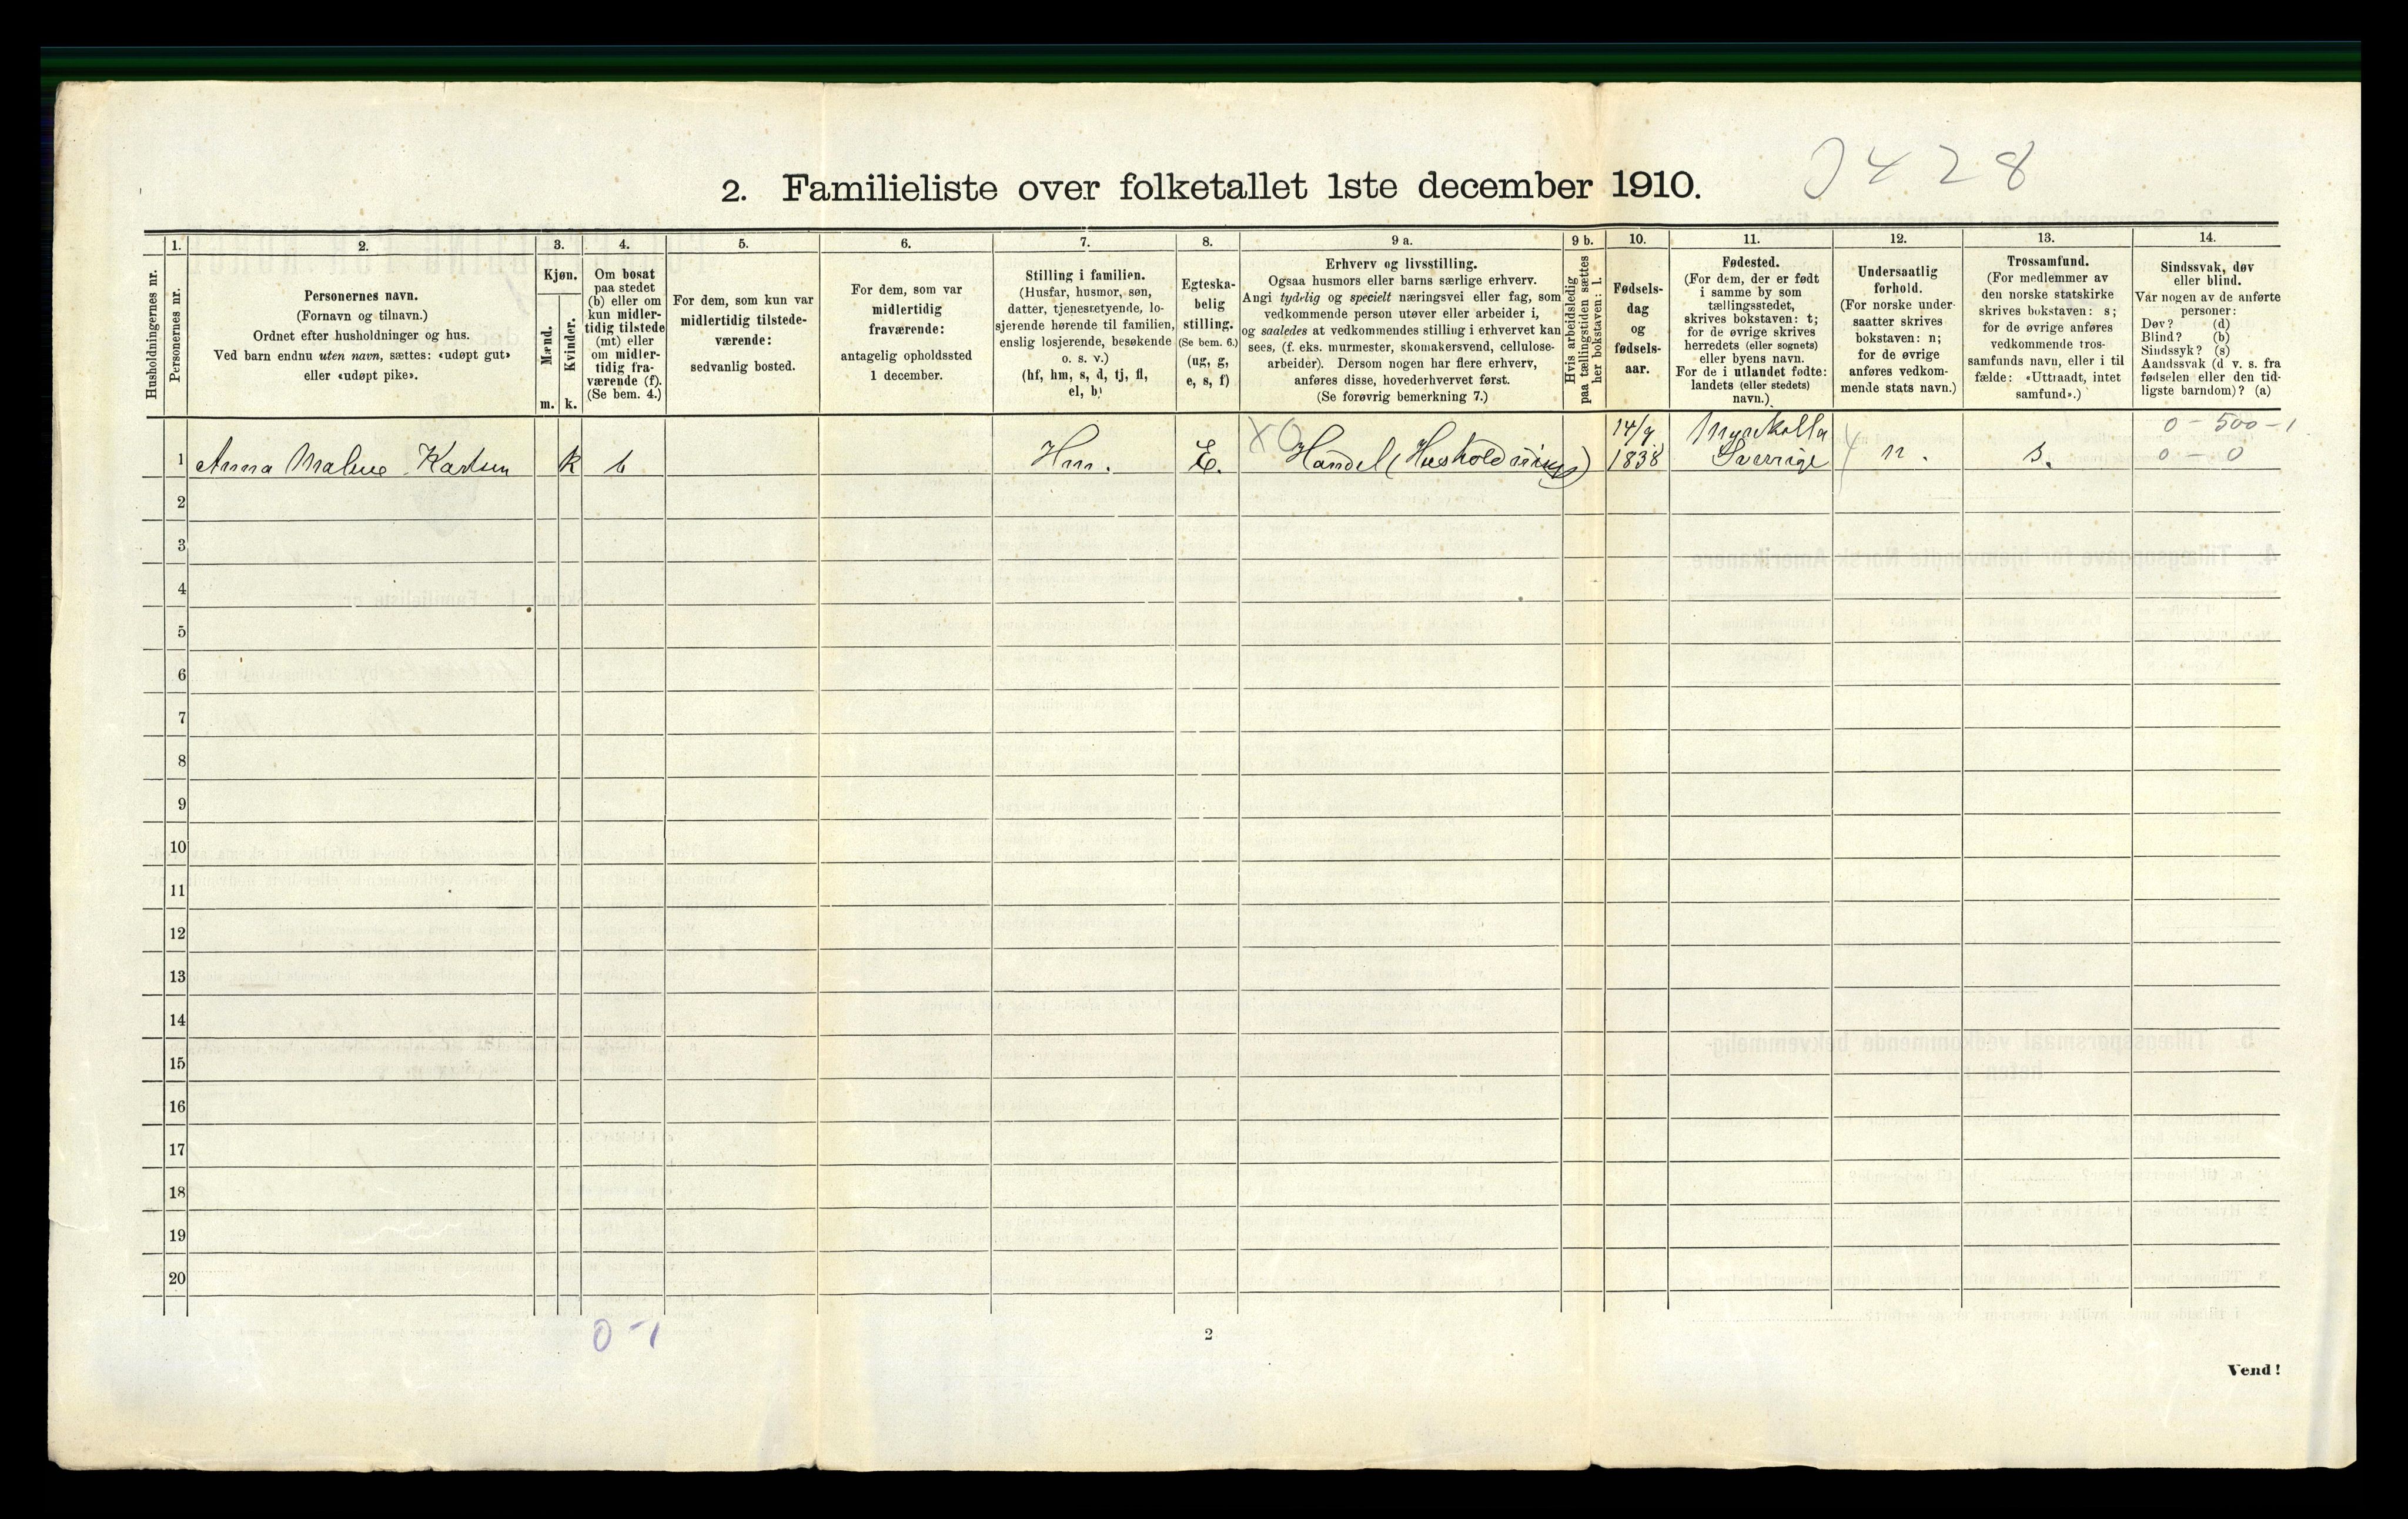 2. Familieliste over folketallet 1ste december 1910.
3428
Husholdningernes nr.
1.
Personernes nr.
2.
Personernes navn.
(Fornavn og tilnavn.)
Ordnet efter husholdninger og hus.
Ved barn endnu uten navn, sættes: «udøpt gut»
eller «udøpt pike».
3.
Kjøn.
Mænd.
Kvinder.
m. k.
4.
Om bosat
paa stedet
(b) eller om
kun midler-
tidig tilstede
(mt) eller
om midler-
tidig fra-
værende (f).
(Se bem. 4.)
5.
For dem, som kun var
midlertidig tilstede-
værende:
sedvanlig bosted.
6.
For dem, som var
midlertidig
fraværende:
antagelig opholdssted
1 december.
7.
Stilling i familien.
(Husfar, husmor, søn,
datter, tjenestetyende, lo-
sjerende hørende til familien,
enslig losjerende, besøkende
o. s. v.)
(hf, hm, s, d, tj, fl,
el, b)
8.
Egteska-
belig
stilling.
(Se bem. 6.)
(ug, g,
e, s, f)
9 a.
Erhverv og livsstilling.
Ogsaa husmors eller barns særlige erhverv.
Angi tydelig og specielt næringsvei eller fag, som
vedkommende person utøver eller arbeider i,
og saaledes at vedkommendes stilling i erhvervet kan
sees, (f. eks. murmester, skomakersvend, cellulose-
arbeider). Dersom nogen har flere erhverv,
anføres disse, hovederhvervet først.
(Se forøvrig bemerkning 7.)
9 b.
Hvis arbeidsledig
paa tællingstiden sættes
her bokstaven: l.
10.
Fødsels-
dag
og
fødsels-
aar.
11.
Fødested.
(For dem, der er født
i samme by som
tællingsstedet,
skrives bokstaven: t;
for de øvrige skrives
herredets (eller sognets)
eller byens navn.
For de i utlandet fødte:
landets (eller stedets)
navn.)
12.
Undersaatlig
forhold.
(For norske under-
saatter skrives
bokstaven: n;
for de øvrige
anføres vedkom-
mende stats navn.)
13.
Trossamfund.
(For medlemmer av
den norske statskirke
skrives bokstaven: s;
for de øvrige anføres
vedkommende tros-
samfunds navn, eller i til
fælde: «Uttraadt, intet
samfund».)
14.
Sindssvak, døv
eller blind.
Var nogen av de anførte
personer:
Døv? (d)
Blind? (b)
Sindssyk? (s)
Aandssvak (d v. s. fra
fødselen eller den tid-
ligste barndom)? (a)
1 Anna Maline Karlsen K b Hm. E. XO Handel (Husholdnings) 14/9 1838 Sverrige n. s. 0 - 500 - 1
0 - 0
2
3
4
5
6
7
8
9
10
11
12
13
14
15
16
17
18
19
20
0-1
2
Vend!